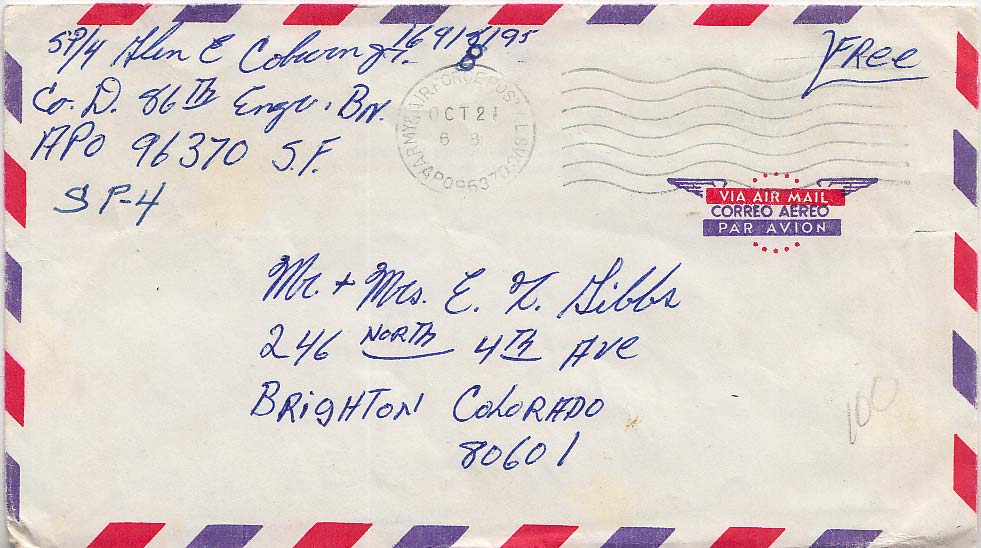 SP/4 Glen E Coburn Jr. 16918195
8
Co. D. 86TH Engr. BN.
APO 96370 S.F.
SP-4
FREE
ARMY & AIR FORCE POSTAL SVC
OCT 21
6 8
APO 96370
VIA AIR MAIL
CORREO AEREO
PAR AVION
Mr. + Mrs. E. L. Gibbs
246 NORTH 4TH AVE
BRIGHTON COLORADO
80601
100